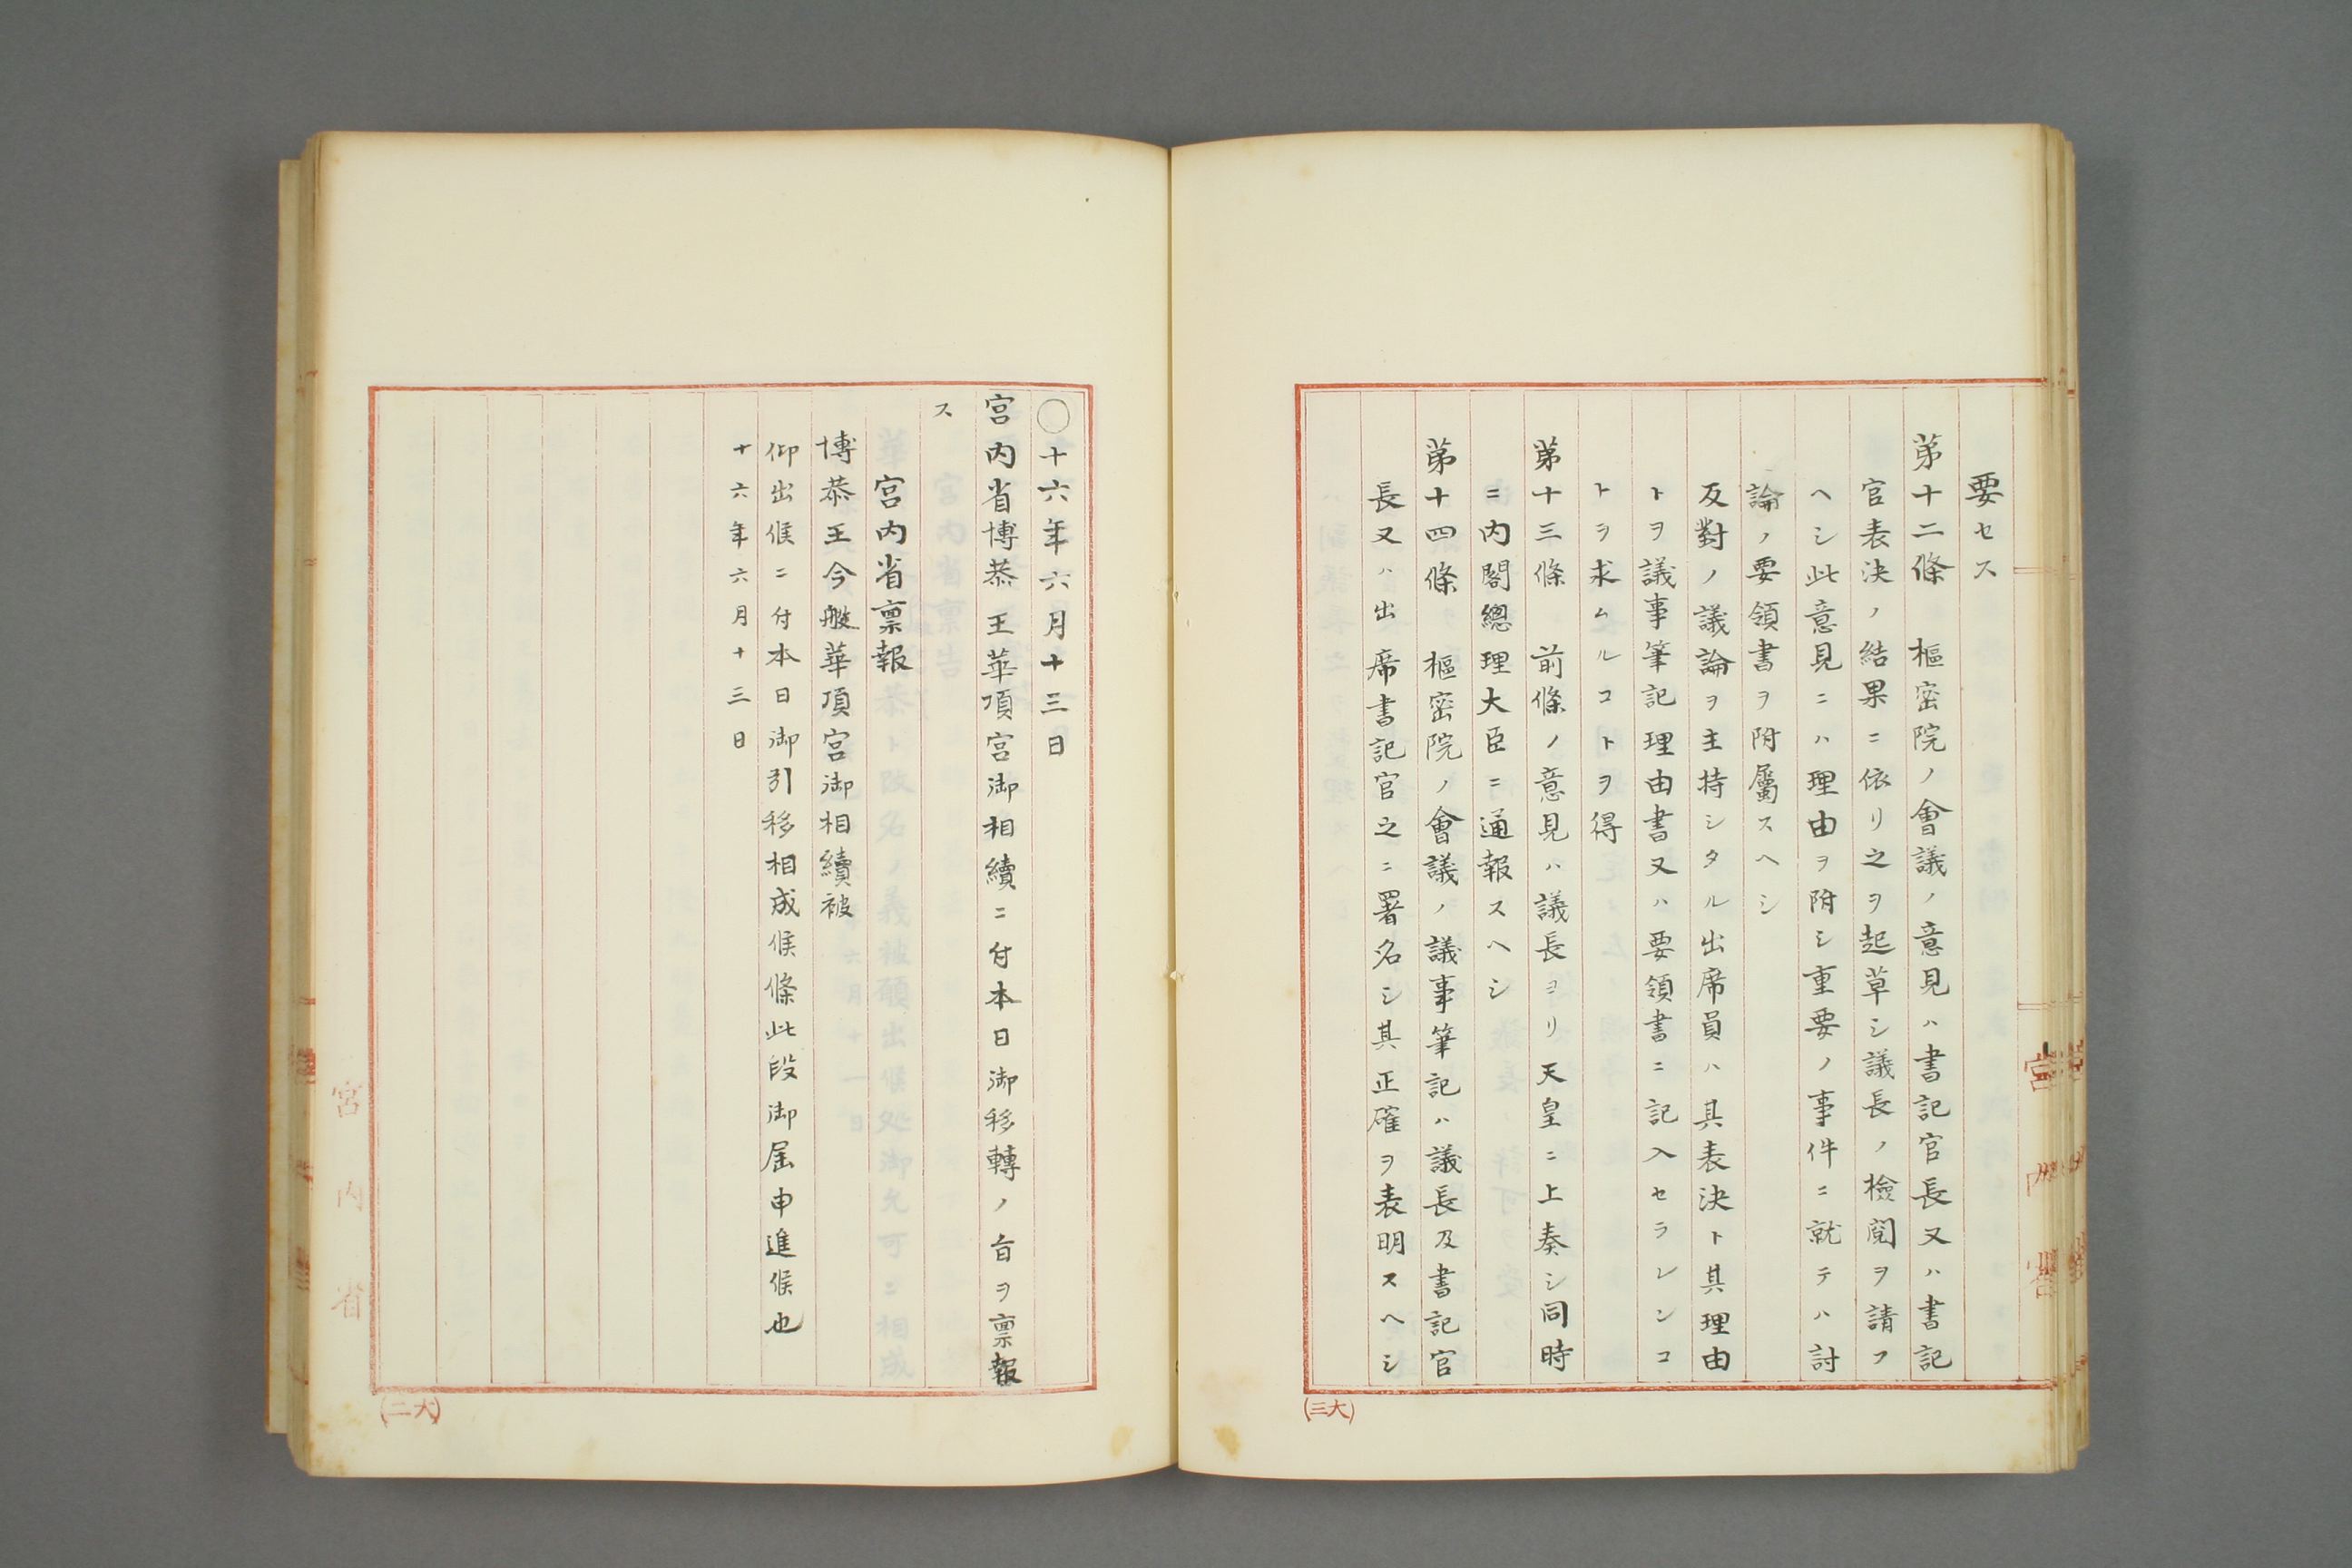 要セス
第十二條　樞密院ノ會議ノ意見ハ書記官長又ハ書記
官表決ノ結果ニ依リ之ヲ起草シ議長ノ檢閲ヲ請フ
ヘシ此意見ニハ理由ヲ附シ重要ノ事件ニ就テハ討
論ノ要領書ヲ附屬スヘシ
反對ノ議論ヲ主持シタル出席員ハ其表決ト其理由
トヲ議事筆記理由書又ハ要領書ニ記入セラレンコ
トヲ求ムルコトヲ得
第十三條　前條ノ意見ハ議長ヨリ天皇ニ上奏シ同時
ニ内閣總理大臣ニ通報スヘシ
第十四條　樞密院ノ會議ノ議事筆記ハ議長及書記官
長又ハ出席書記官之ニ署名シ其正確ヲ表明スヘシ
(大三)
〇十六年六月十三日
宮内省博恭王華頂宮御相續ニ付本日御移轉ノ旨ヲ禀報
ス
宮内省禀報
博恭王今般華頂宮御相續被
仰出候ニ付本日御引移相成候條此段御届申進候也
十六年六月十三日
宮内省
(大二)